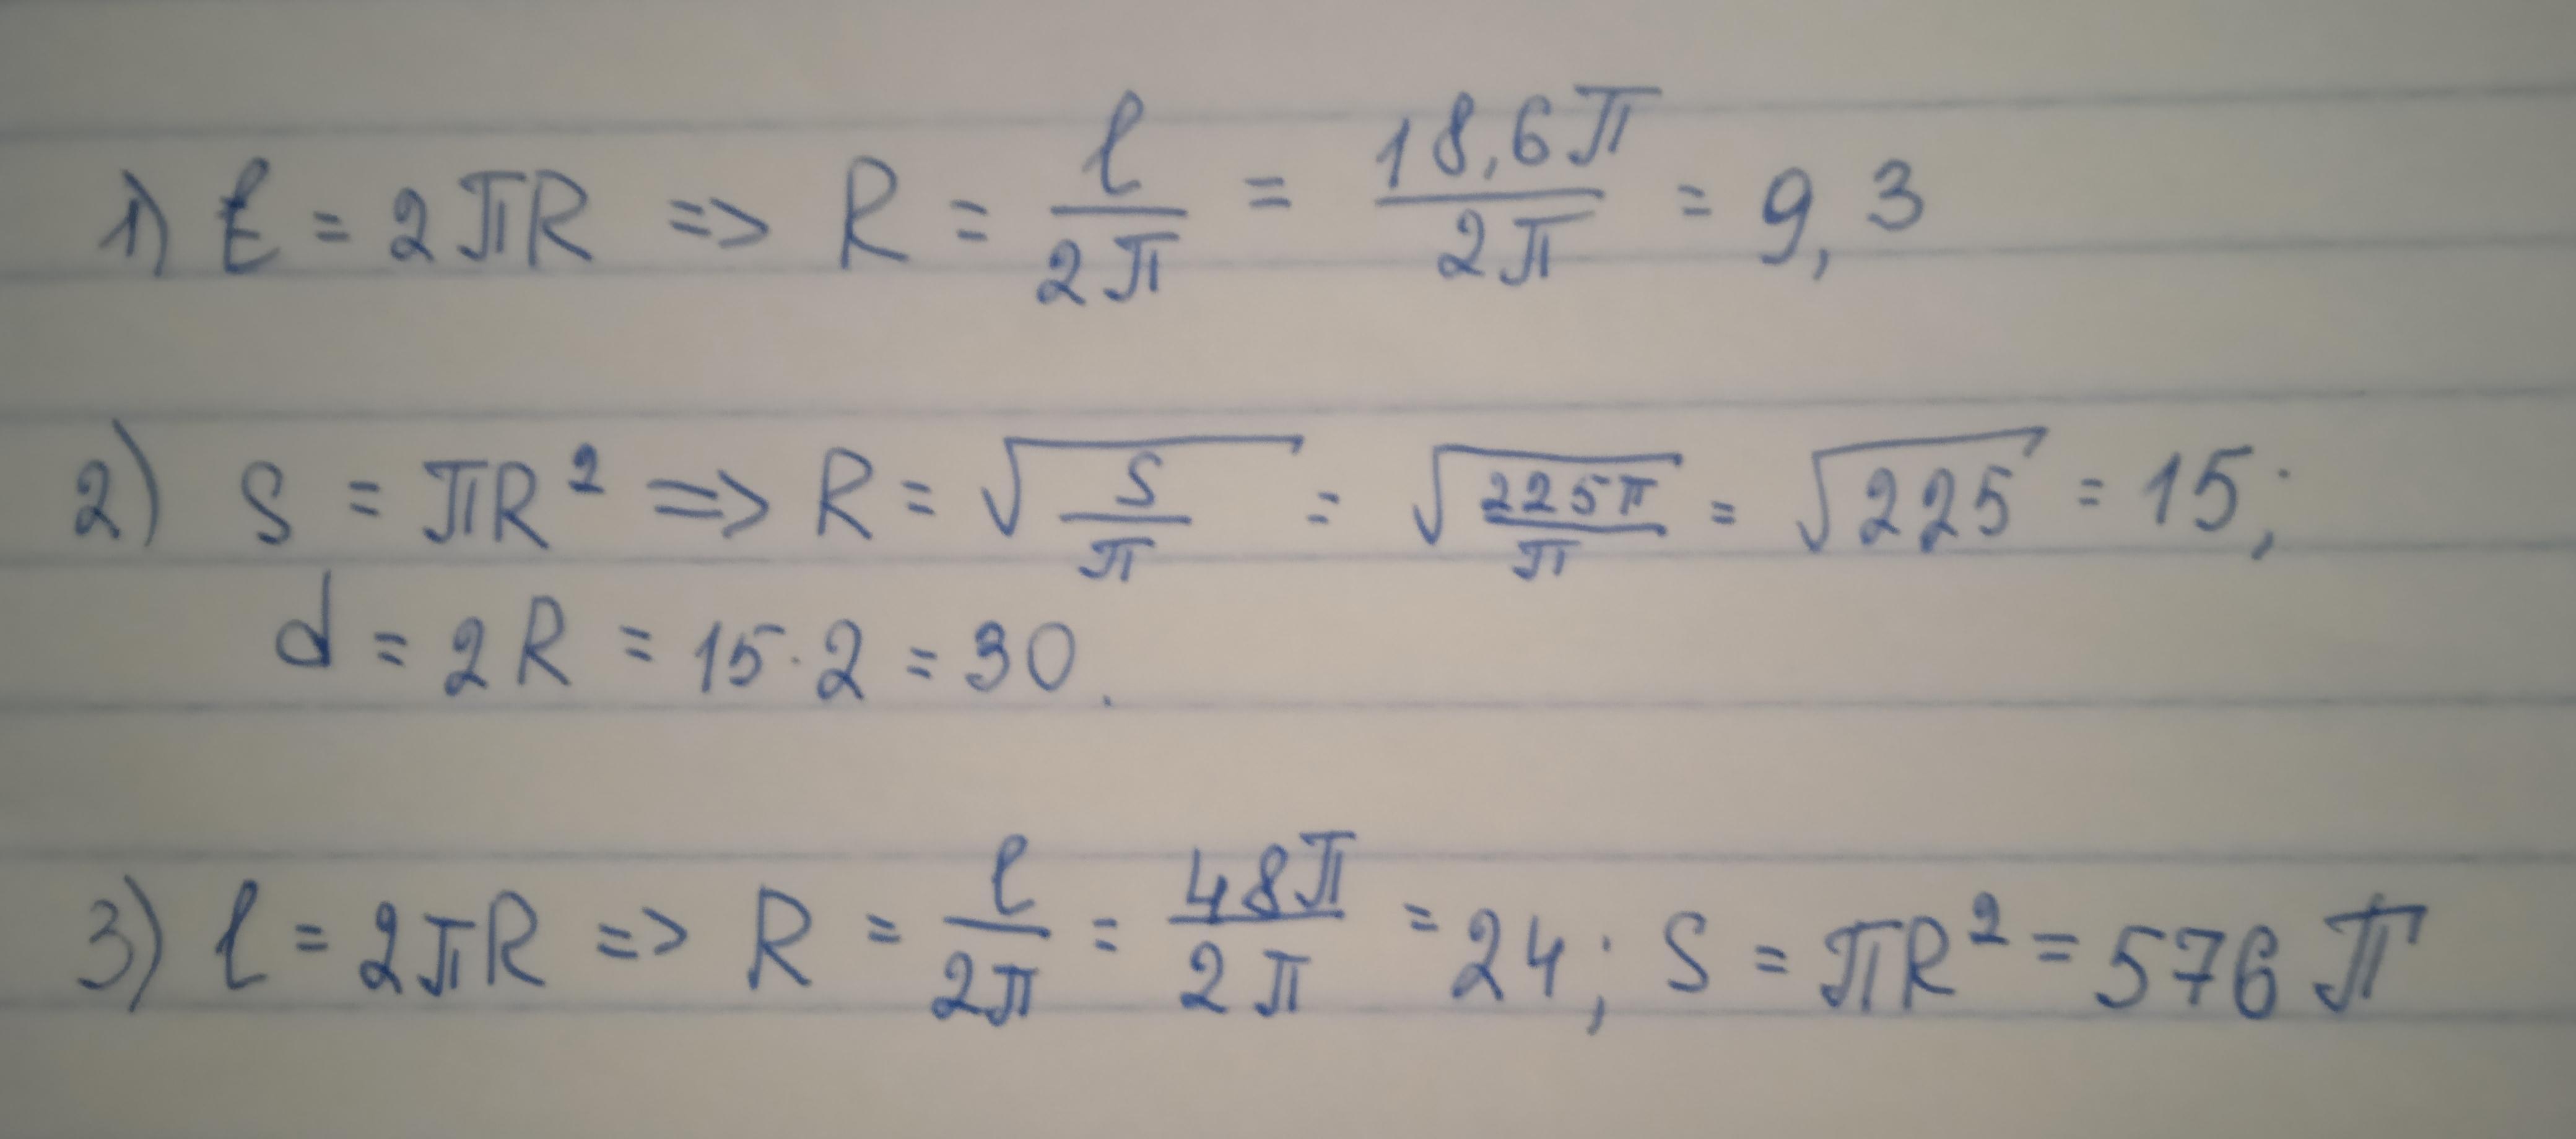 1) ℓ = 2πR => R = ℓ/2π = 18,6π/2π = 9,3
2) S = πR² => R = √(S/π) = √(225π/π) = √225 = 15;
d = 2R = 15·2 = 30.
3) ℓ = 2πR => R = ℓ/2π = 48π/2π = 24; S = πR² = 576π